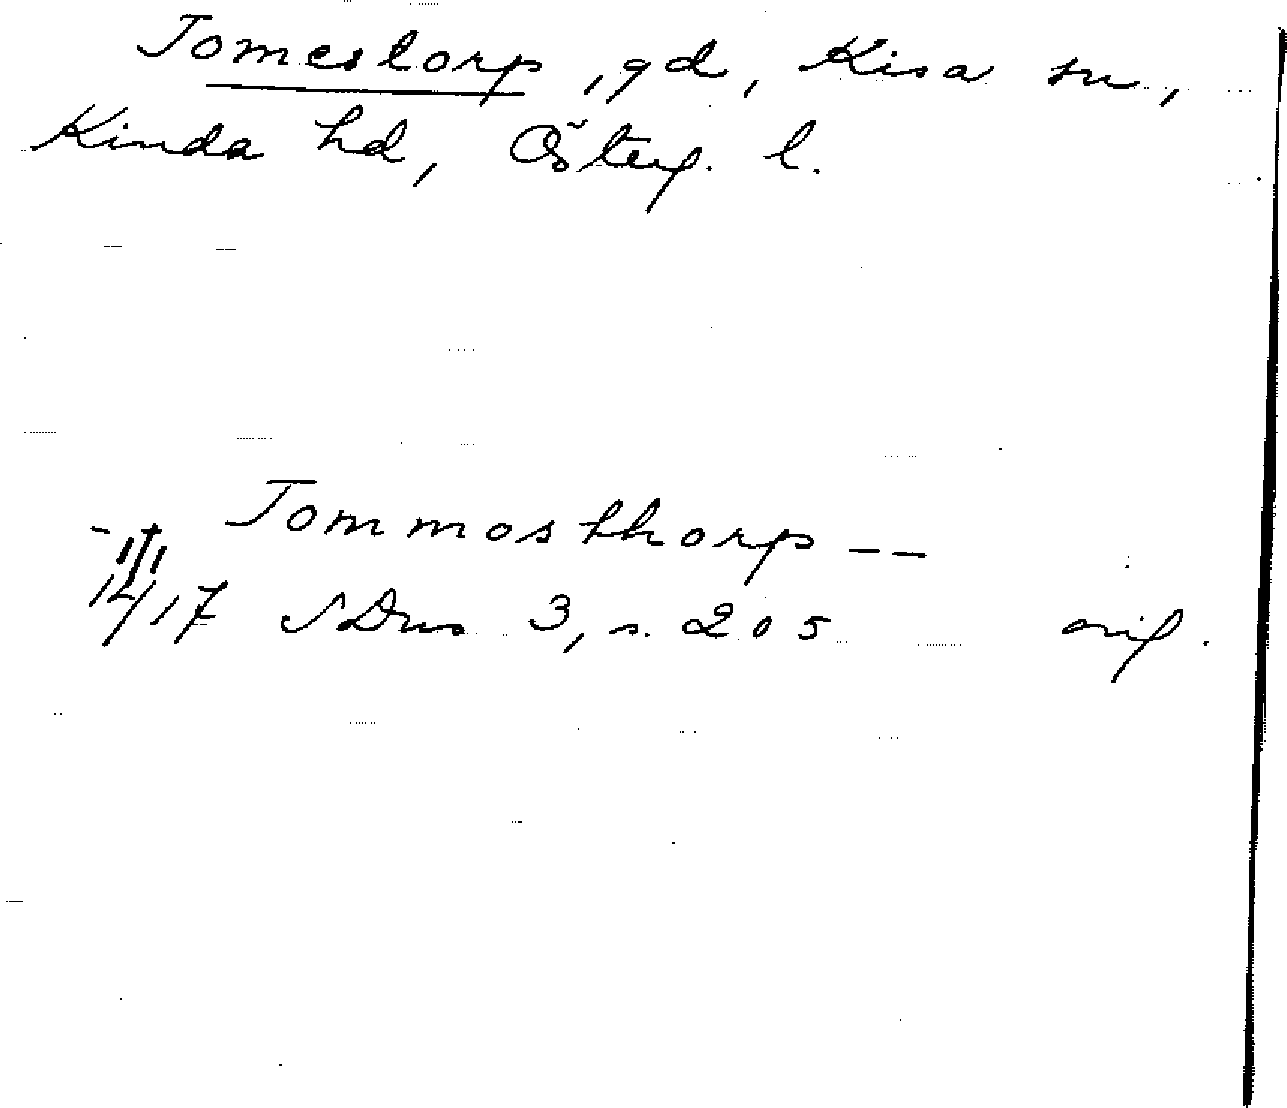 Tomestorp, gd, Kisa sn,
Kinda hd, Österg. l.
Tommosthorp --
1417 SDns 3, s. 205 orig.